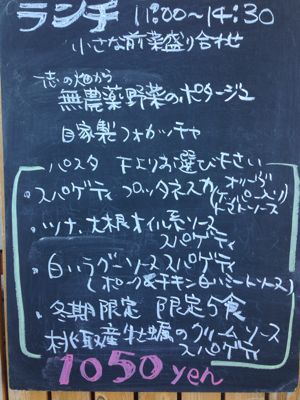 ランチ 11:00~14:30
小さな前菜盛り合わせ
志の畑から
無農薬野菜のポタージュ
自家製フォカッチャ
パスタ 下よりお選び下さい
・スパゲティ プッタネスカ(オリーブ
ケーパー入り
トマトソース
・ツナ、大根オイル系ソース
スパゲティ
・白いラグーソーススパゲティ
(ポーク&チキン白いミートソース)
・冬期限定 限定5食
桃取産牡蠣のクリームソース
スパゲティ
1050yen